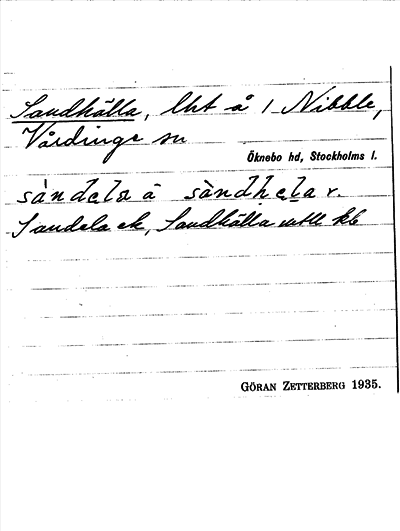 Sandhälla, lht å 1 Nibble,
Vårdinge sn
Öknebo hd, Stockholms l.
sàndela ä sàndhela r.
Sandela ek, Sandhälla uttl kb
GÖRAN ZETTERBERG 1935.